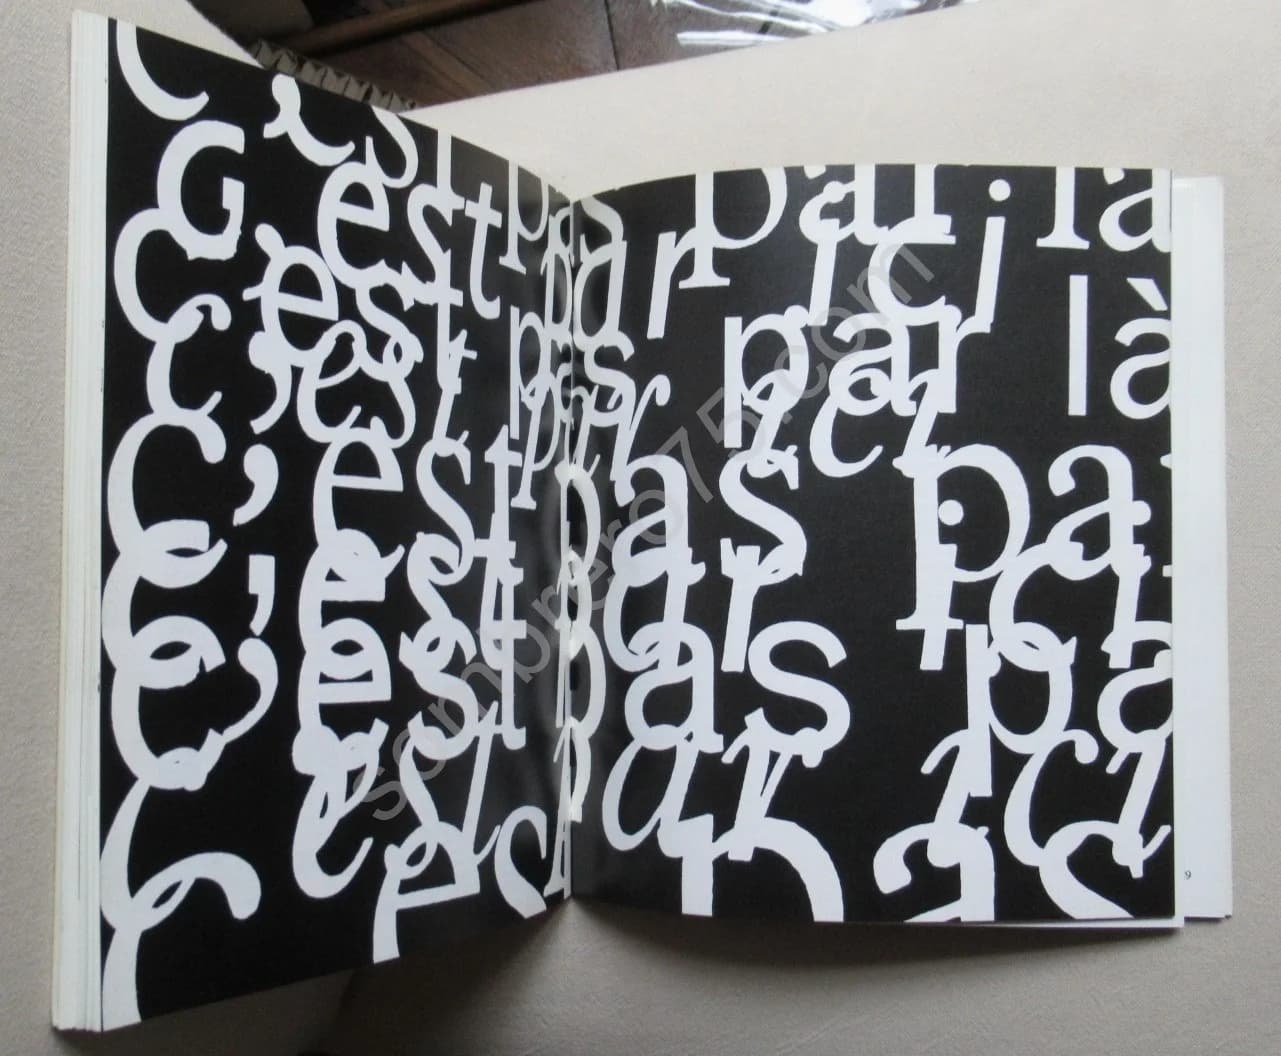 c'est pas par là
C'est par ici
C'est pas par là
C'est par ici
C'est pas pa
C'est par ici
C'est pas pa
C'est par ici
C'est pas
9
sombrero75.com